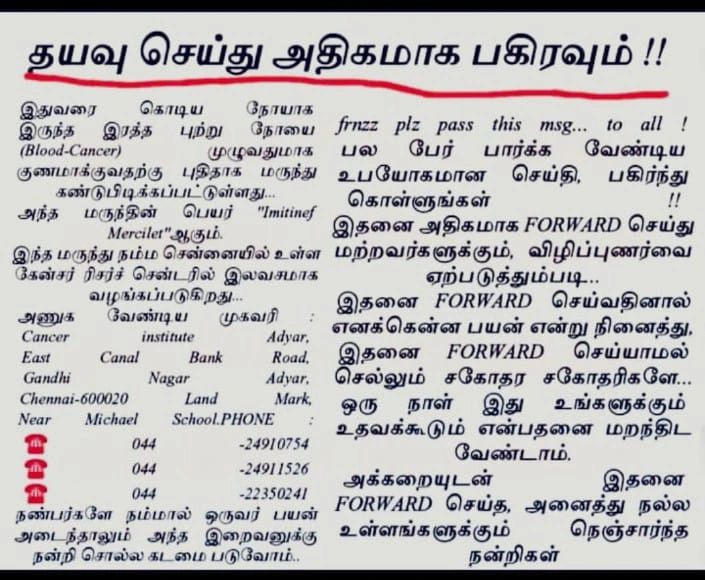 தயவு செய்து அதிகமாக பகிரவும் !!
இதுவரை கொடிய நோயாக
இருந்த இரத்த புற்று நோயை
(Blood-Cancer) முழுவதுமாக
குணமாக்குவதற்கு புதிதாக மருந்து
கண்டுபிடிக்கப்பட்டுள்ளது...
அந்த மருந்தின் பெயர் "Imitinef
Mercilet"ஆகும்.
இந்த மருந்து நம்ம சென்னையில் உள்ள
கேன்சர் ரிசர்ச் சென்டரில் இலவசமாக
வழங்கப்படுகிறது...
அணுக வேண்டிய முகவரி :
Cancer institute Adyar,
East Canal Bank Road,
Gandhi Nagar Adyar,
Chennai-600020 Land Mark,
Near Michael School.PHONE :
044 -24910754
044 -24911526
044 -22350241
நண்பர்களே நம்மால் ஒருவர் பயன்
அடைந்தாலும் அந்த இறைவனுக்கு
நன்றி சொல்ல கடமை படுவோம்..
frnzz plz pass this msg... to all !
பல பேர் பார்க்க வேண்டிய
உபயோகமான செய்தி, பகிர்ந்து
கொள்ளுங்கள் !!
இதனை அதிகமாக FORWARD செய்து
மற்றவர்களுக்கும், விழிப்புணர்வை
ஏற்படுத்தும்படி...
இதனை FORWARD செய்வதினால்
எனக்கென்ன பயன் என்று நினைத்து,
இதனை FORWARD செய்யாமல்
செல்லும் சகோதர சகோதரிகளே...
ஒரு நாள் இது உங்களுக்கும்
உதவக்கூடும் என்பதனை மறந்திட
வேண்டாம்.
அக்கறையுடன் இதனை
FORWARD செய்த, அனைத்து நல்ல
உள்ளங்களுக்கும் நெஞ்சார்ந்த
நன்றிகள்